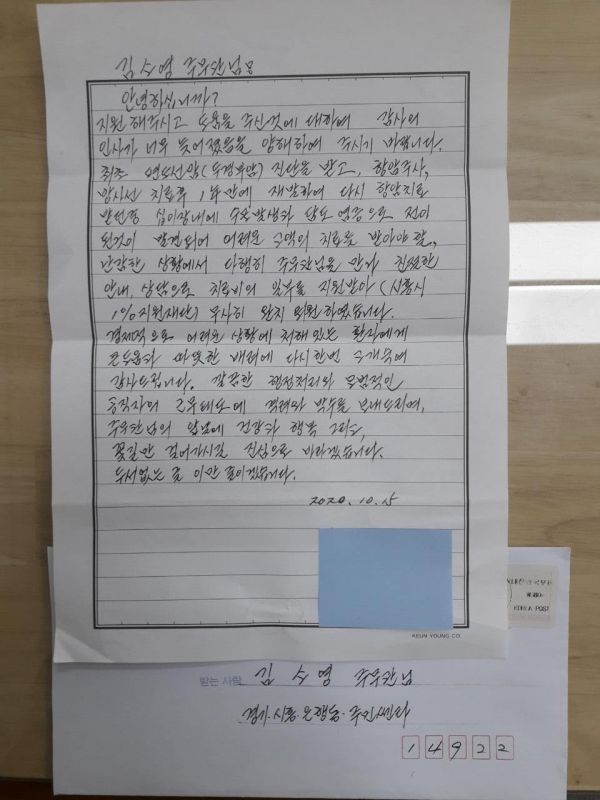 김소영 주무관님용
안녕하십니까?
지원해주시고 도움을 주신것에 대하여 감사의
인사가 너무 늦어졌음을 양해하여 주시기 바랍니다.
최초 편도선암(두경부암) 진단을 받고, 항암주사,
방사선 치료후 1년만에 재발하여 다시 항암치료
받던중 십이지장내에 발생한 담도 염증으로 전이
된것이 발견되어 어려운 수액의 치료를 받아야 할,
난감한 상황에서 다행히 주무관님을 만나 친절한
안내, 상담으로 치료비의 일부를 지원받아 (시흥시
1%지원재단) 무사히 완치 퇴원하였습니다.
경제적으로 어려운 상황에 처해있는 환자에게
큰도움과 따뜻한 배려에 다시한번 고개숙여
감사드립니다. 깔끔한 행정처리와 모범적인
공직자의 근무태도에 격려와 박수를 보내드리며,
주무관님의 앞날에 건강과 행복 그리고,
꽃길만 걸어가시길 진심으로 바라겠습니다.
두서없는 글 이만 줄이겠습니다.
2020.10.15
KEUN YOUNG CO.
KOREA POST
받는 사람 김소영 주무관님
경기·시흥·은행동·주민센타
14922